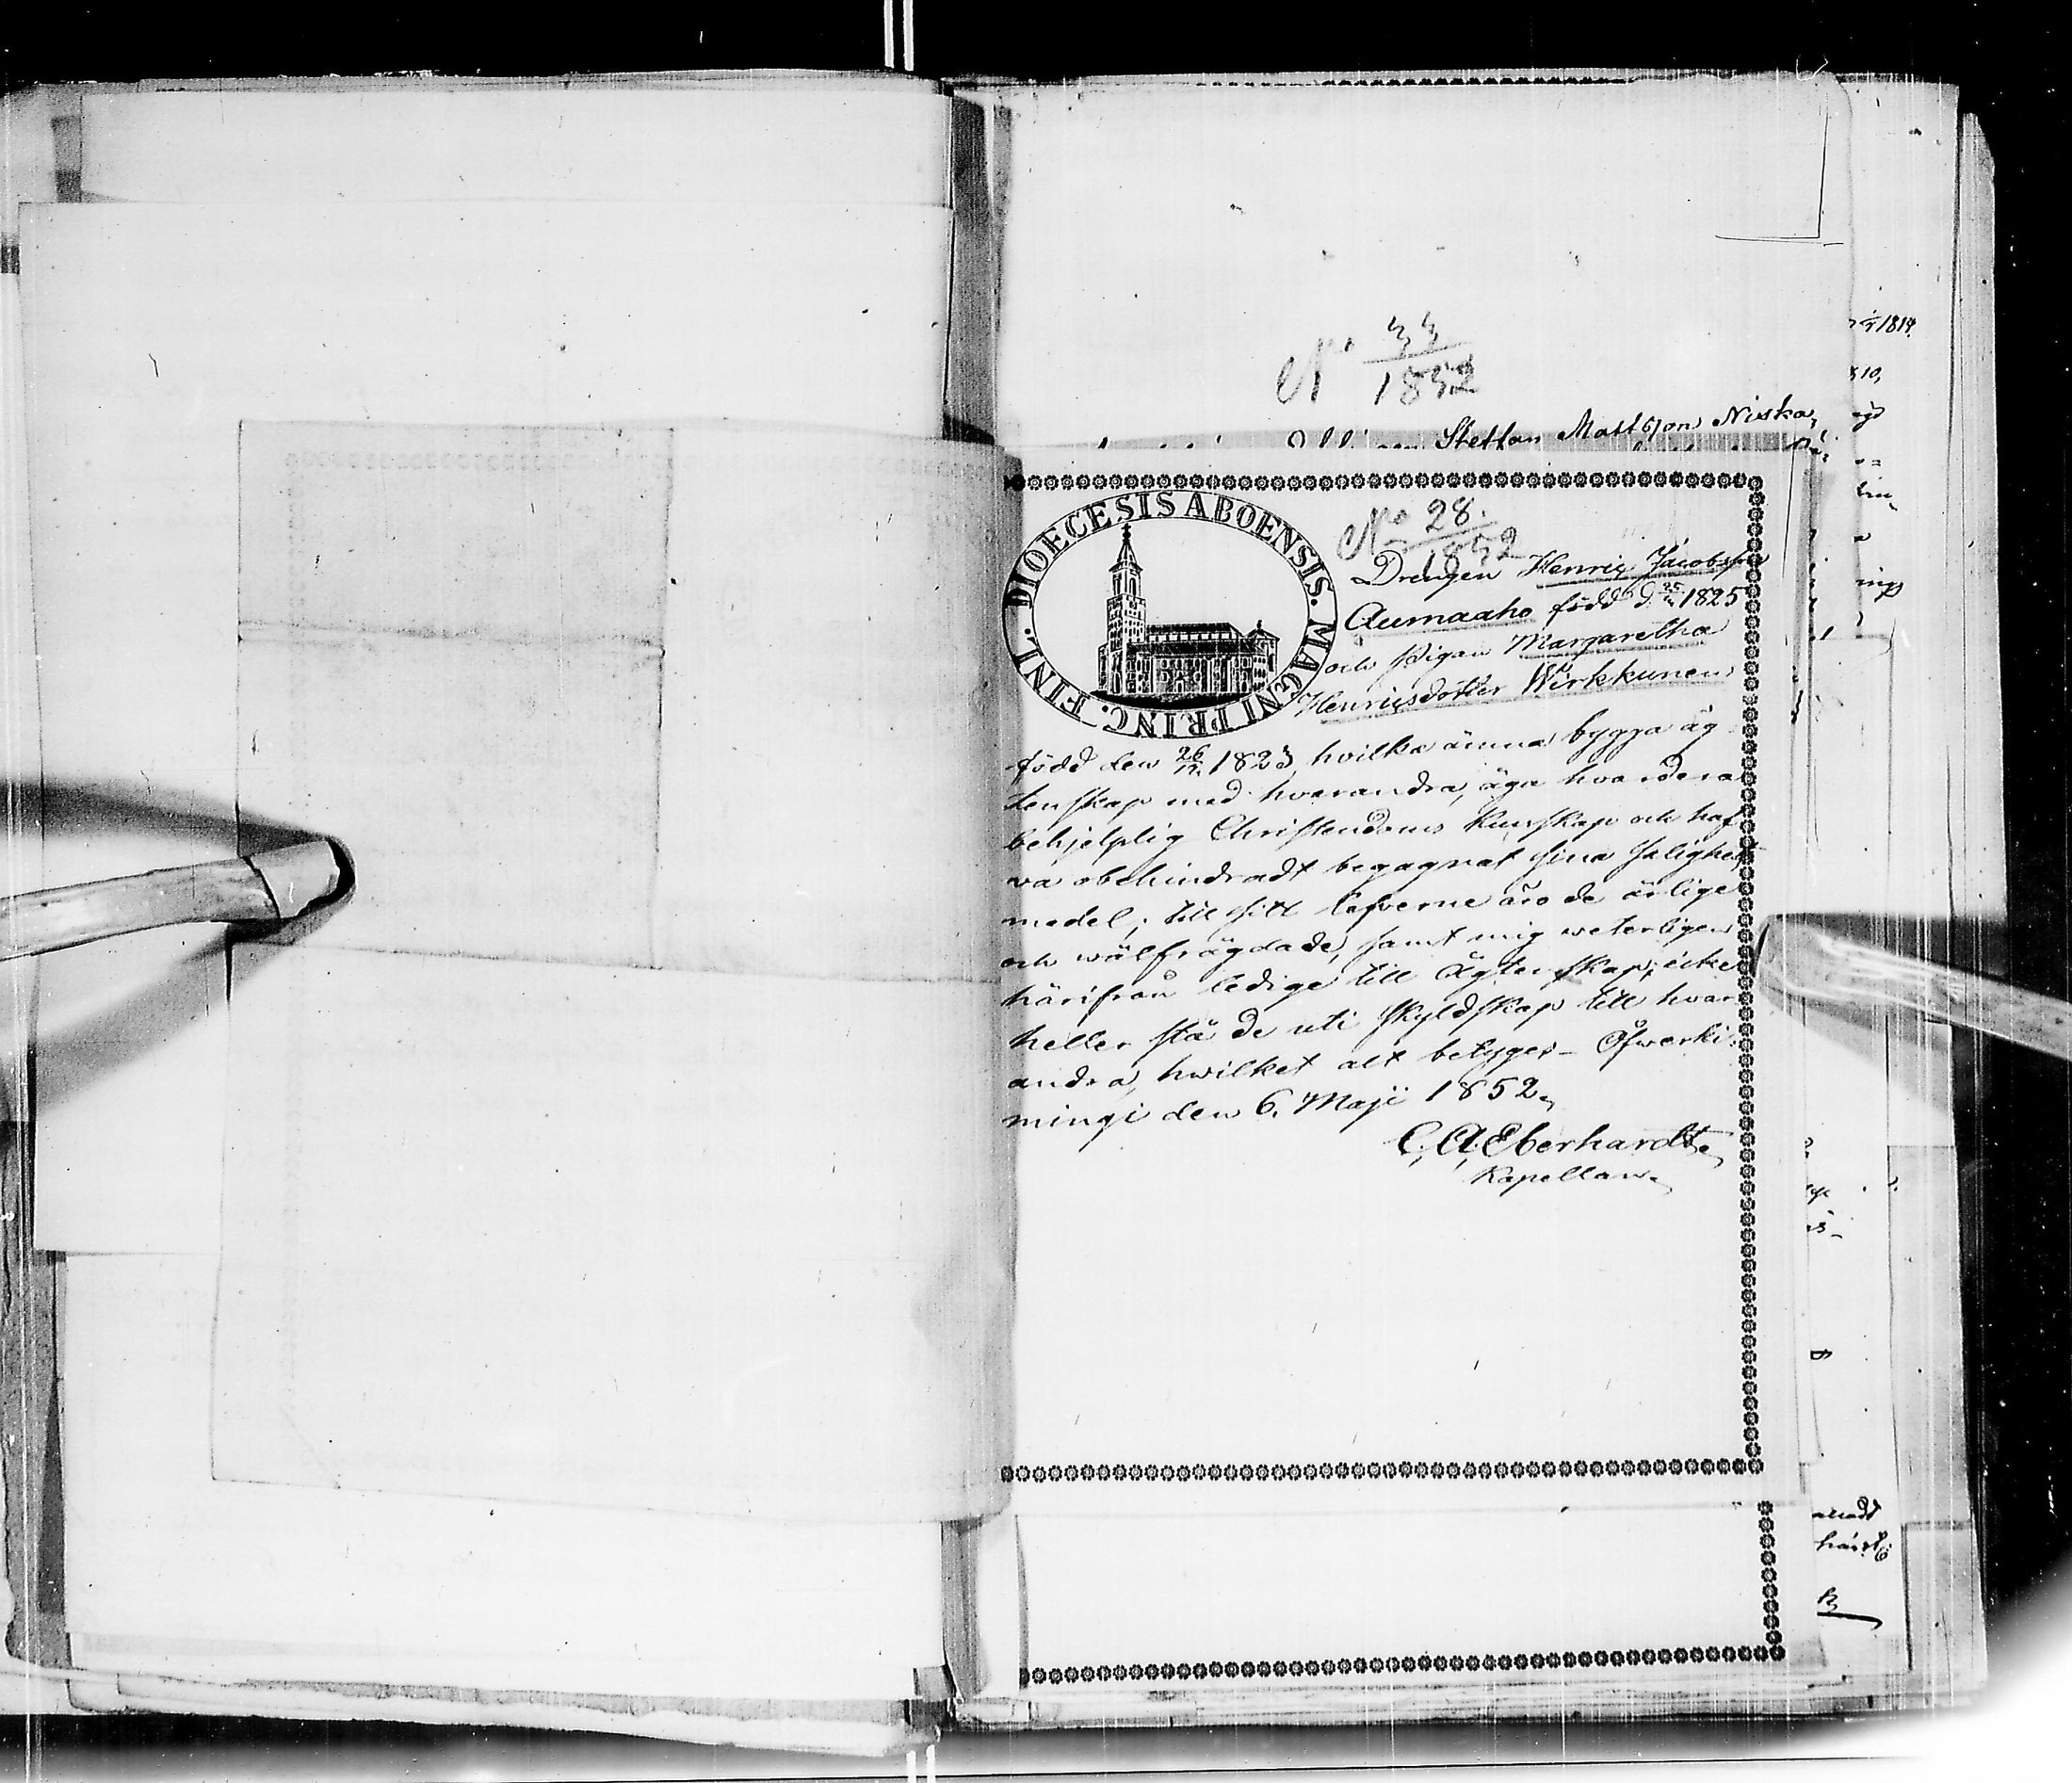 No 33
1852
Steffan Mattsson Niska,
DIOECESIS ABOENSIS. MAGNI PRINC. FINL.
No 28.
1852
Drengen Henric Jacobsson
Aumaaho född d. 25 1825
och Pigan Margaretha
Henricsdotter Wirkkunen
född den 26 1823, hvilka ämna bygga äg
tenskap med hvarandra, äga hvardera
behjelplig Christendoms kunskap och haf
va obehindradt begagnat sina salighets
medel; till sitt lefverne äro de ärlige
och wälfrägdade, samt mig weterligen
härifrån ledige till Ägtenskap; icke
heller stå de uti skyldskap till hvar
andra, hwilket alt betyges. Öfwerki
mingi den 6. Maji 1852.
C. A. Eberhardt.
Kapellan.
1819.